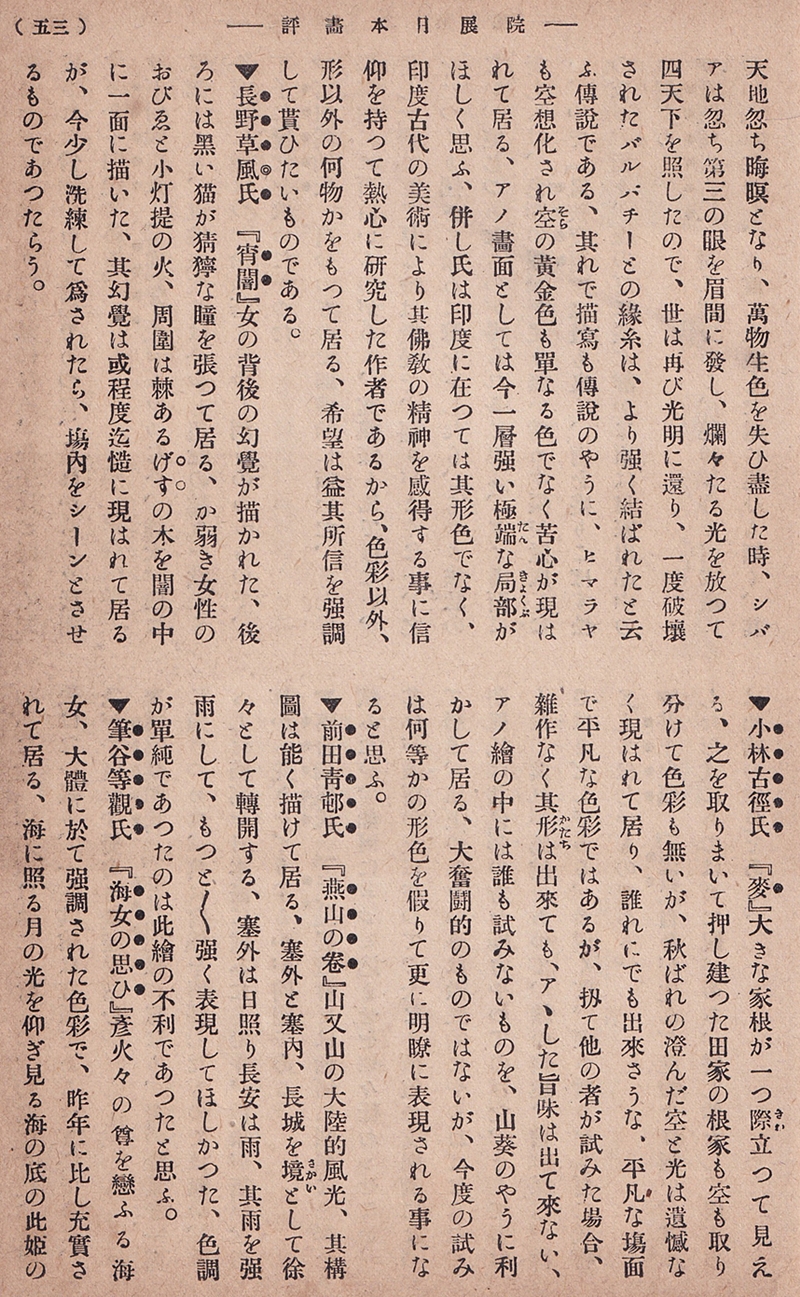 (三五)
── 院展日本畵評 ──
天地忽ち晦暝となり、萬物生色を失ひ盡した時、シバ
アは忽ち第三の眼を眉間に發し、爛々たる光を放つて
四天下を照したので、世は再び光明に還り、一度破壞
されたバルバチーとの緣糸は、より强く結ばれたと云
ふ傳說である、其れで描寫も傳說のやうに、ヒマラヤ
も空想化され空の黃金色も單なる色でなく苦心が現は
れて居る、アノ畵面としては今一層强い極端な局部が
ほしく思ふ、併し氏は印度に在つては其形色でなく、
印度古代の美術により其佛敎の精神を感得する事に信
仰を持つて熱心に硏究した作者であるから、色彩以外、
形以外の何物かをもつて居る、希望は益其所信を强調
して貰ひたいものである。
▼長野草風氏 『宵闇』女の背後の幻覺が描かれた、後
ろには黑い猫が猜獰な瞳を張つて居る、か弱き女性の
おびゑと小灯提の火、周圍は棘あるげすの木を闇の中
に一面に描いた、其幻覺は或程度迄慥に現はれて居る
が、今少し洗練して爲されたら、塲內をシーンとさせ
るものであつたらう。
▼小林古徑氏 『麥』大きな家根が一つ際立つて見え
る、之を取りまいて押し建つた田家の根家も空も取り
分けて色彩も無いが、秋ばれの澄んだ空と光は遺憾な
く現はれて居り、誰れにでも出來さうな、平凡な塲面
で平凡な色彩ではあるが、扨て他の者が試みた場合、
雜作なく其形は出來ても、アヽした旨味は出て來ない、
アノ繪の中には誰も試みないものを、山葵のやうに利
かして居る、大奮鬪的のものではないが、今度の試み
は何等かの形色を假りて更に明瞭に表現される事にな
ると思ふ。
▼前田靑邨氏 『燕山の卷』山又山の大陸的風光、其構
圖は能く描けて居る、塞外と塞內、長城を境として徐
々として轉開する、塞外は日照り長安は雨、其雨を强
雨にして、もつと〱强く表現してほしかつた、色調
が單純であつたのは此繪の不利であつたと思ふ。
▼筆谷等觀氏 『海女の思ひ』彥火々の尊を戀ふる海
女、大體に於て强調された色彩で、昨年に比し充實さ
れて居る、海に照る月の光を仰ぎ見る海の底の此姬の